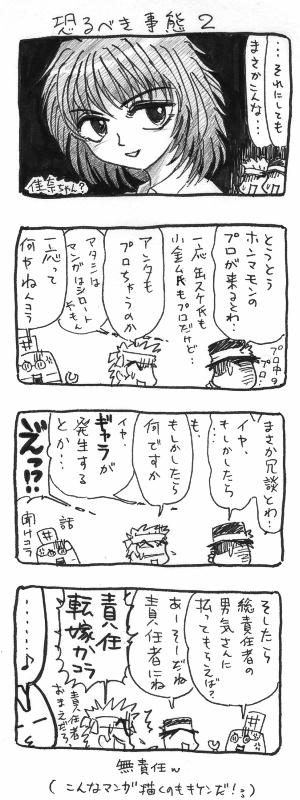 恐るべき事態2
…それにしても
まさかこんな…
佳奈ちゃん?
とうとう
ホンマモンの
プロが来るとわ…
一応缶スケ氏も
小金ム氏もプロだけど…
プロ中の
プロ…
アンタも
プロちゃうのか
アタシは
マンガはシロートだもん
一応って
何やねんコラ
まさか冗談とわ…
イヤ、
もしかしたら
も、
もしかしたら
何ですか
イヤ、
ギャラが
発生する
とか…
えっ!?
話
聞けコラ
そしたら
総責任者の
男気さんに
払ってもらえば?
あーそーだね
責任者にね
責任
転嫁かコラ
責任者
おまえだろ
……♪
無責任w
(こんなマンガ描くのもキケンだ!)